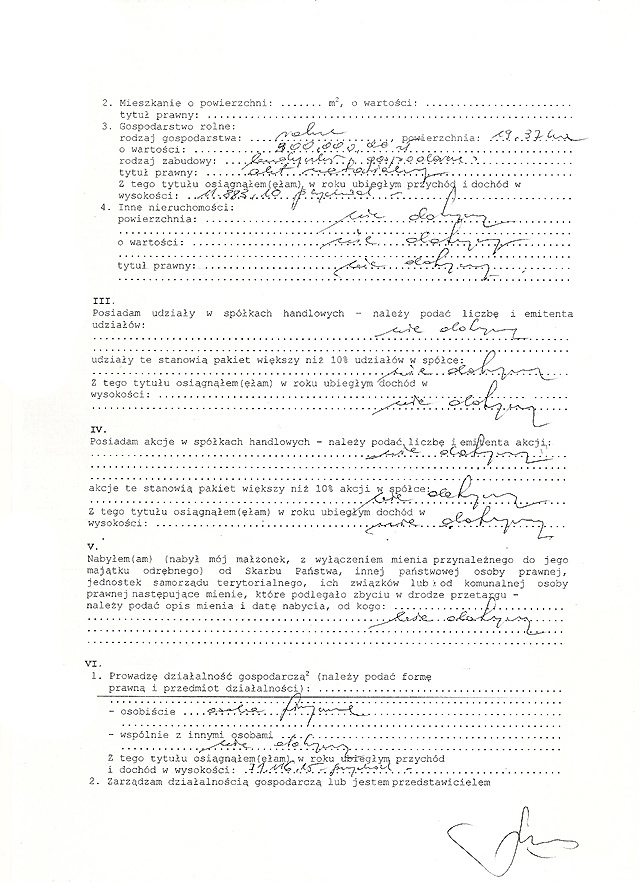 2. Mieszkanie o powierzchni: ....... m², o wartości: .......................
tytuł prawny: ..........................................................
3. Gospodarstwo rolne:
rodzaj gospodarstwa: ... rolne ..., powierzchnia: 19,37 ha
o wartości: ... 900.000,00 zł
rodzaj zabudowy: ...
tytuł prawny: ... akt notarialny
Z tego tytułu osiągnąłem(ęłam) w roku ubiegłym przychód i dochód w
wysokości: 11.883,10 przychód -
4. Inne nieruchomości:
powierzchnia: ... nie dotyczy
o wartości: ... nie dotyczy
tytuł prawny: ... nie dotyczy
III.
Posiadam udziały w spółkach handlowych – należy podać liczbę i emitenta
udziałów:
nie dotyczy
udziały te stanowią pakiet większy niż 10% udziałów w spółce:
nie dotyczy
Z tego tytułu osiągnąłem(ęłam) w roku ubiegłym dochód w
wysokości: ...
nie dotyczy
IV.
Posiadam akcje w spółkach handlowych – należy podać liczbę i emitenta akcji:
nie dotyczy
akcje te stanowią pakiet większy niż 10% akcji w spółce:
nie dotyczy
Z tego tytułu osiągnąłem(ęłam) w roku ubiegłym dochód w
wysokości: ... nie dotyczy
V.
Nabyłem(am) (nabył mój małżonek, z wyłączeniem mienia przynależnego do jego
majątku odrębnego) od Skarbu Państwa, innej państwowej osoby prawnej,
jednostek samorządu terytorialnego, ich związków lub od komunalnej osoby
prawnej następujące mienie, które podlegało zbyciu w drodze przetargu –
należy podać opis mienia i datę nabycia, od kogo: ...
nie dotyczy
VI.
1. Prowadzę działalność gospodarczą² (należy podać formę
prawną i przedmiot działalności): ...
- osobiście ... osoba fizyczna
- wspólnie z innymi osobami ...
nie dotyczy
Z tego tytułu osiągnąłem(ęłam) w roku ubiegłym przychód
i dochód w wysokości: 71.116,15 - przychód -
2. Zarządzam działalnością gospodarczą lub jestem przedstawicielem